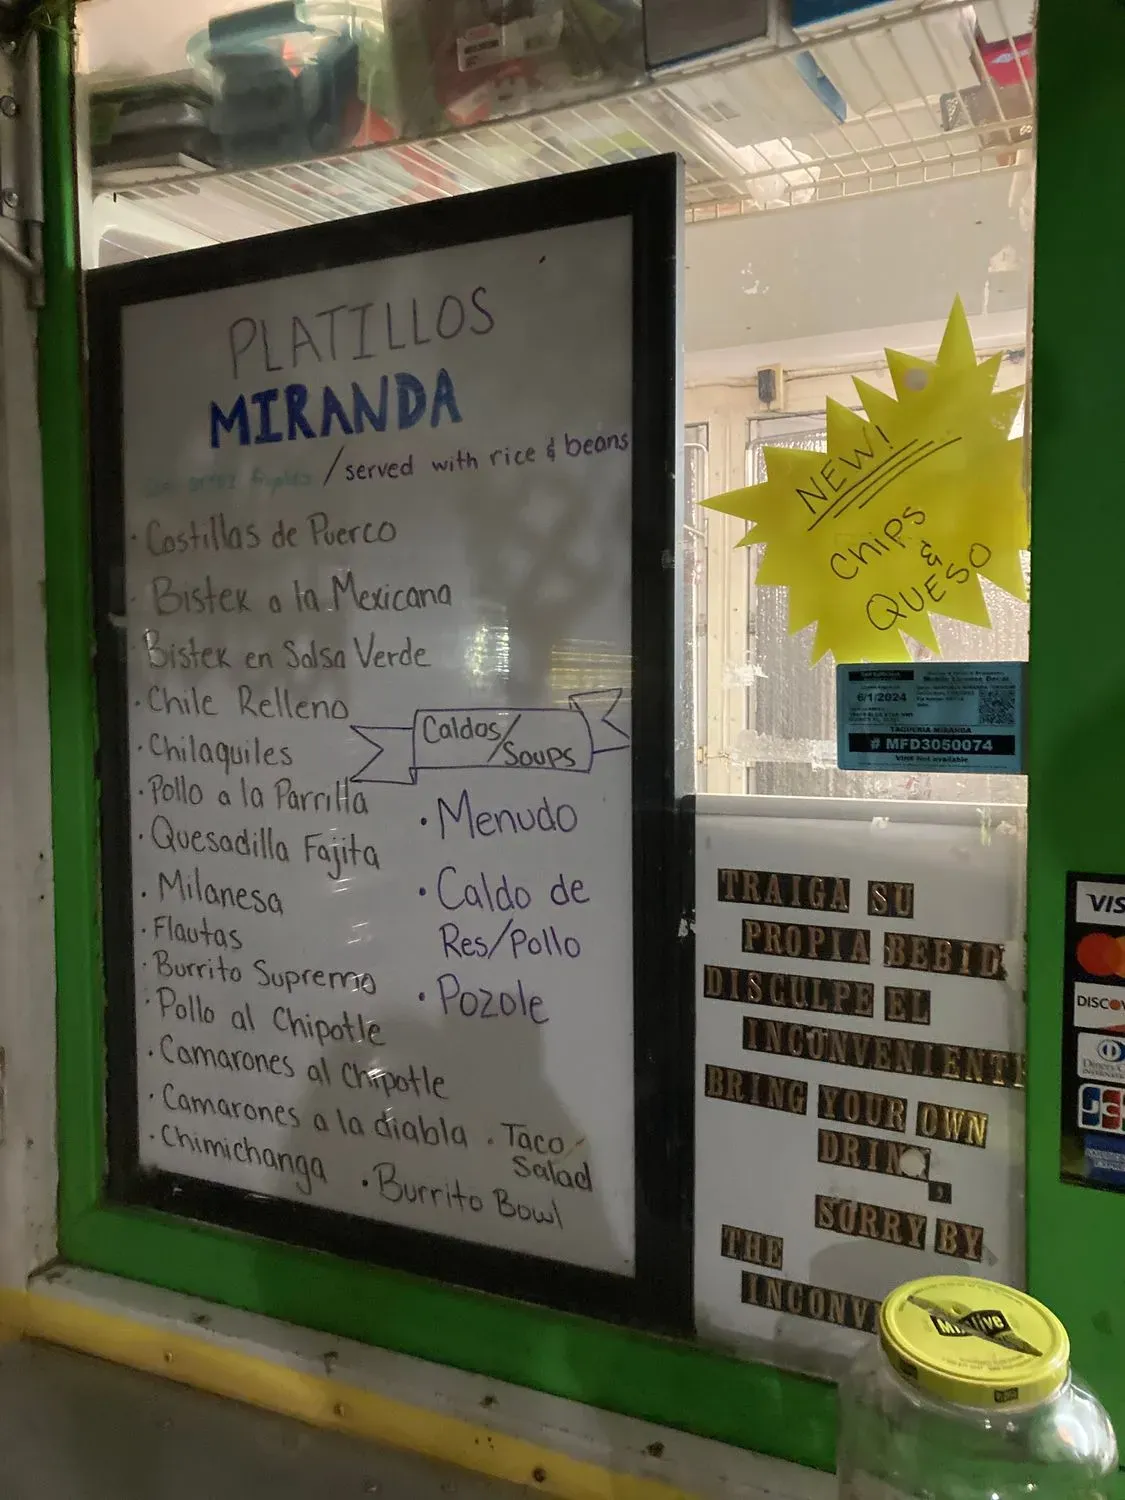 PLATILLOS
MIRANDA
/served with rice & beans
· Costillas de Puerco
· Bistek a la Mexicana
Bistek en Salsa Verde
· Chile Relleno
· Chilaquiles
· Pollo a la Parrilla
· Quesadilla Fajita
· Milanesa
· Flautas
· Burrito Supremo
· Pollo al Chipotle
· Camarones al Chipotle
· Camarones a la diabla
· Chimichanga
· Taco
Salad
· Burrito Bowl
Caldos/
Soups
· Menudo
· Caldo de
Res/Pollo
· Pozole
NEW!
Chips
&
QUESO
6/1/2024
TAQUERIA MIRANDA
# MFD3050074
VIN# Not available
TRAIGA SU
PROPIA BEBID
DISCULPE EL
INCONVENIENT
BRING YOUR OWN
DRINK
,
SORRY BY
THE
INCONV
VIS
DISCO
Diners C
JCB